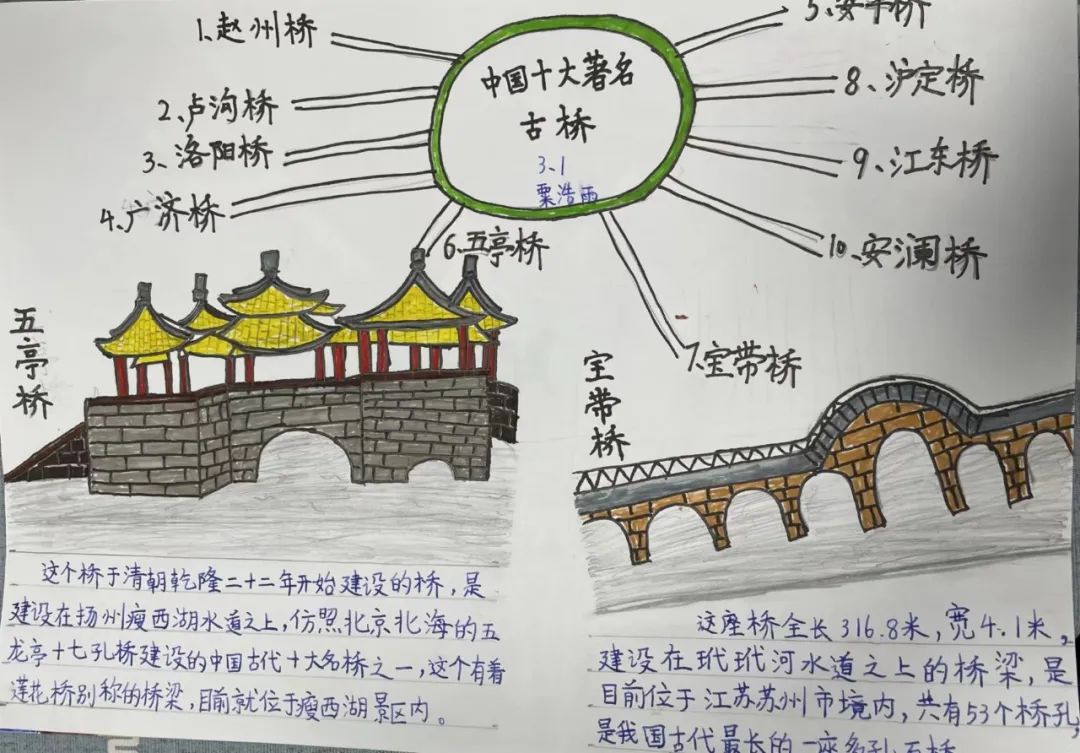 中国十大著名
古桥
3.1
粟浩雨
1、赵州桥
2、卢沟桥
3、洛阳桥
4、广济桥
5、安平桥
6、五亭桥
7、宝带桥
8、泸定桥
9、江东桥
10、安澜桥
五亭桥
这个桥于清朝乾隆二十二年开始建设的桥，是
建设在扬州瘦西湖水道之上，仿照北京北海的五
龙亭十七孔桥建设的中国古代十大名桥之一，这个有着
莲花桥别称的桥梁，目前就位于瘦西湖景区内。
宝带桥
这座桥全长316.8米，宽4.1米，
建设在玳玳河水道之上的桥梁，是
目前位于江苏苏州市境内，共有53个桥孔，
是我国古代最长的一座多孔石桥